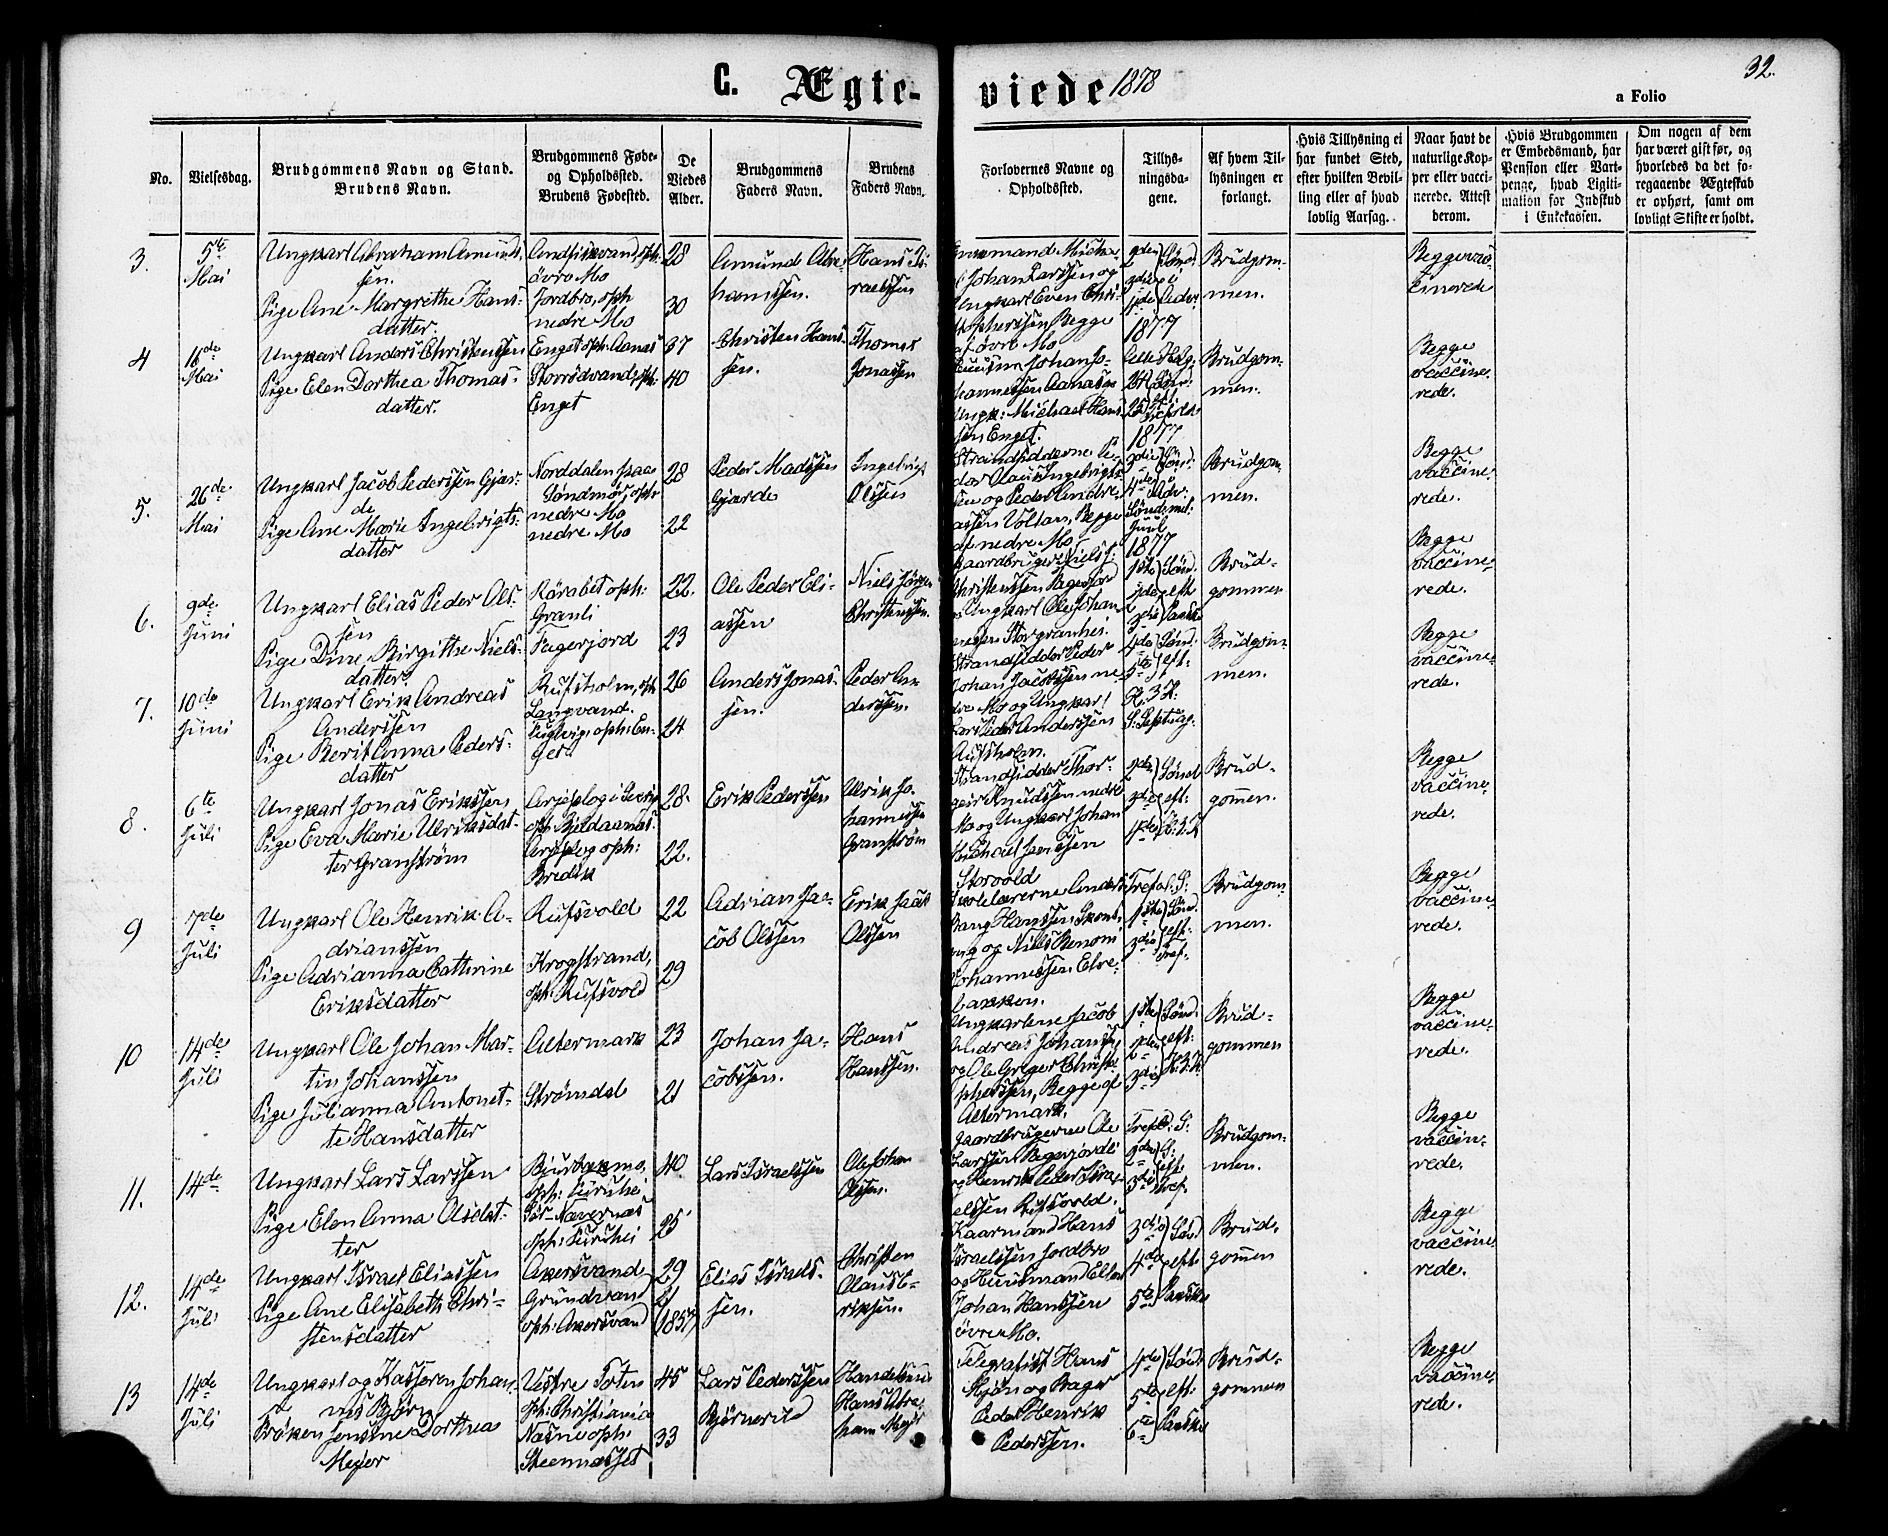 C. Ægte-
viede 1878
32.
a Folio
No.
Vielsesdag.
Brudgommens Navn og Stand.
Brudens Navn.
Brudgommens Føde-
og Opholdssted.
Brudens Fødested.
De
Viedes
Alder.
Brudgommens
Faders Navn.
Brudens
Faders Navn.
Forlovernes Navne og
Opholdssted.
Tillys-
ningsda-
gene.
Af hvem Til-
lysningen er
forlangt.
Hvis Tillysning ei
har fundet Sted,
efter hvilken Bevil-
ling eller af hvad
lovlig Aarsag.
Naar havt de
naturlige Kop-
per eller vacci-
nerede. Attest
derom.
Hvis Brudgommen
er Embedsmand, har
Pension eller Vart-
penge, hvad Ligiti-
mation for Indskud
i Enkekassen.
Om nogen af dem
har været gift før, og
hvorledes da det fo-
regaaende Ægteskab
er ophørt, samt om
lovligt Skifte er holdt.
3.
5te
Mai
Ungkarl Abraham Amunds-
sen.
Pige Ane Margrethe Hans-
datter.
øvre Mo
Jordbro, oph:
nedre Mo
28
30
Amund Abra-
hamssen.
Hans Is-
raelssen
Johan Larssen og
Ungkarl Even Chri-
stophersen Begge
af øvre Mo
1877
Brudgom-
men.
Begge vac-
cinerede
4
16de
Mai
Ungkarl Anders Christenssen
Pige Elen Dorthea Thomas-
datter.
Enget oph: Aanas
Storrsdvand, oph:
Enget
37
40
Christen Hans-
sen.
Thomas
Jonassen
Johan Jo-
hannessen Aanas og
Ungk: Michael Hans-
sen Enget.
1877
Brudgom-
men.
Begge
vaccine-
rede.
5.
26de
Mai
Ungkarl Jacob Pederssen Gjær-
de
Pige Ane Marie Ingebrigts-
datter
Norddalen paa
Søndmør, oph:
nedre Mo
nedre Mo
28
22
Peder Madssen
Gjærde
Ingebrigt
Olssen
Strandsidderne Pe-
der Olaus Ingebrigts-
sen og Peder Andre-
assen Voltan, Begge
af nedre Mo
3die
4de
Juul
1877
Brudgom-
men.
Begge
vaccine-
rede.
6.
9de
Juni
Ungkarl Elias Peder Ols-
sen
Pige Dine Birgitthe Niels-
datter
Rørabet oph:
Granli
Fagerjord
22.
23
Ole Peder Eli-
assen
Niels Jørgen
Christenssen.
Gaardbruger Niels J:
Christenssen Fagerjord
og Ungkarl Ole Johan
1ste Sønd:
2den eft
3die Paaske
Brud-
gommen.
Begge
vaccine-
rede.
7.
10de
Juni
Ungkarl Erik Andreas
Anderssen
Pige Berit Anna Peders-
datter
Rufsholm, oph
Langvand.
26
24
Anders Jonas-
sen.
Peder An-
derssen.
Strandsidder Peder
Johan Jacobssen ne-
dre Mo og Ungkarl
Lars Peder Anderssen
Rufsholm.
4de Sønd:
5te eft:
S: Septuag.
Brudgom-
men.
Begge
vaccine-
rede.
8.
6te
Juli
Ungkarl Jonas Erikssen
Pige Eva Marie Ulriksdat-
ter Granstrøm
Arjeplog i Sverig
Arjeplog oph:
Bredek
28.
22.
Erik Pederssen
Ulrik Jo-
hannessen
Granstrøm
Strandsidder Thor-
geir Knudssen nedre
Mo og Ungkarl Johan
Michael Jenssen
Storvold
2den Sønd
3die eft:
4de
Brud-
gommen.
Begge
vaccine-
rede.
9
7de
Juli
Ungkarl Ole Henrik A-
drianssen
Pige Adrianna Cathrine
Eriksdatter
Rufsvold
Krogstrand,
oph: Rufsvold
22
29
Adrian Ja-
cob Olssen
Erik Isak
Olssen
Skolelærerne Anders
og Niels Benoni
Johannessen Elve-
bakken.
Tref. S:
1ste Sønd
3die eft:
Tref.
Brudgom-
men.
Begge
vaccine-
rede.
10
14de
Juli
Ungkarl Ole Johan Mar-
tin Johanssen
Pige Julianna Antonet-
te Hansdatter
Altermark
Strømdal
23
21
Johan Ja-
cobssen.
Hans
Hanssen.
Ungkarlene Jacob
Andreas Johanssen
og Ole Greger Christo-
phersen, Begge af
Altermark.
1ste Sønd
2den eft:
3die
Brud-
gommen
Begge
vaccine-
rede.
11.
14de
Ungkarl Lars Larssen
Pige Elen Anna Olsdat-
ter
40
25
Lars Israelssen
Ole Johan
Olssen.
Gaardbrugerne Ole
Larssen
og Henrik Peder Isra-
elssen Rufsvold.
Tref. S:
2den S:
3die eft:
Tref.
Brudgom-
men.
Begge
vaccin-
rede.
12.
14de
Juli
Ungkarl Israel Eliassen
Pige Ane Elisabeth Chri-
stensdatter
Akersvand
Grundvand
oph: Akersvand
29
21
(1857)
Elias Israels-
sen.
Christen
Olaus E-
rikssen.
Kaarmand Hans
Israelssen Jordbro
og Huusmand Ellen
Johan Hanssen
øvre Mo.
3die Søn
4de eft
5te Paaske
Brud-
gommen
Begge
vaccine-
rede.
13
14de
Juli
Ungkarl og Kasserer Johan-
nes Bjørn
Frøken Jensine Dorthea
Meyer
Vestre Toten
oph: Christiania
Næsne oph:
Steennæsset
45
33
Lars Pederssen
Bjørnerud
Handelsm:
Hans Abra-
ham Meyer
Telegrafist Hans
Mjøn og Bager
Peder Henrik
Pederssen.
4de Sønd
5te eft:
6te Paaske
Brud-
gommen
Begge
vaccine-
rede.